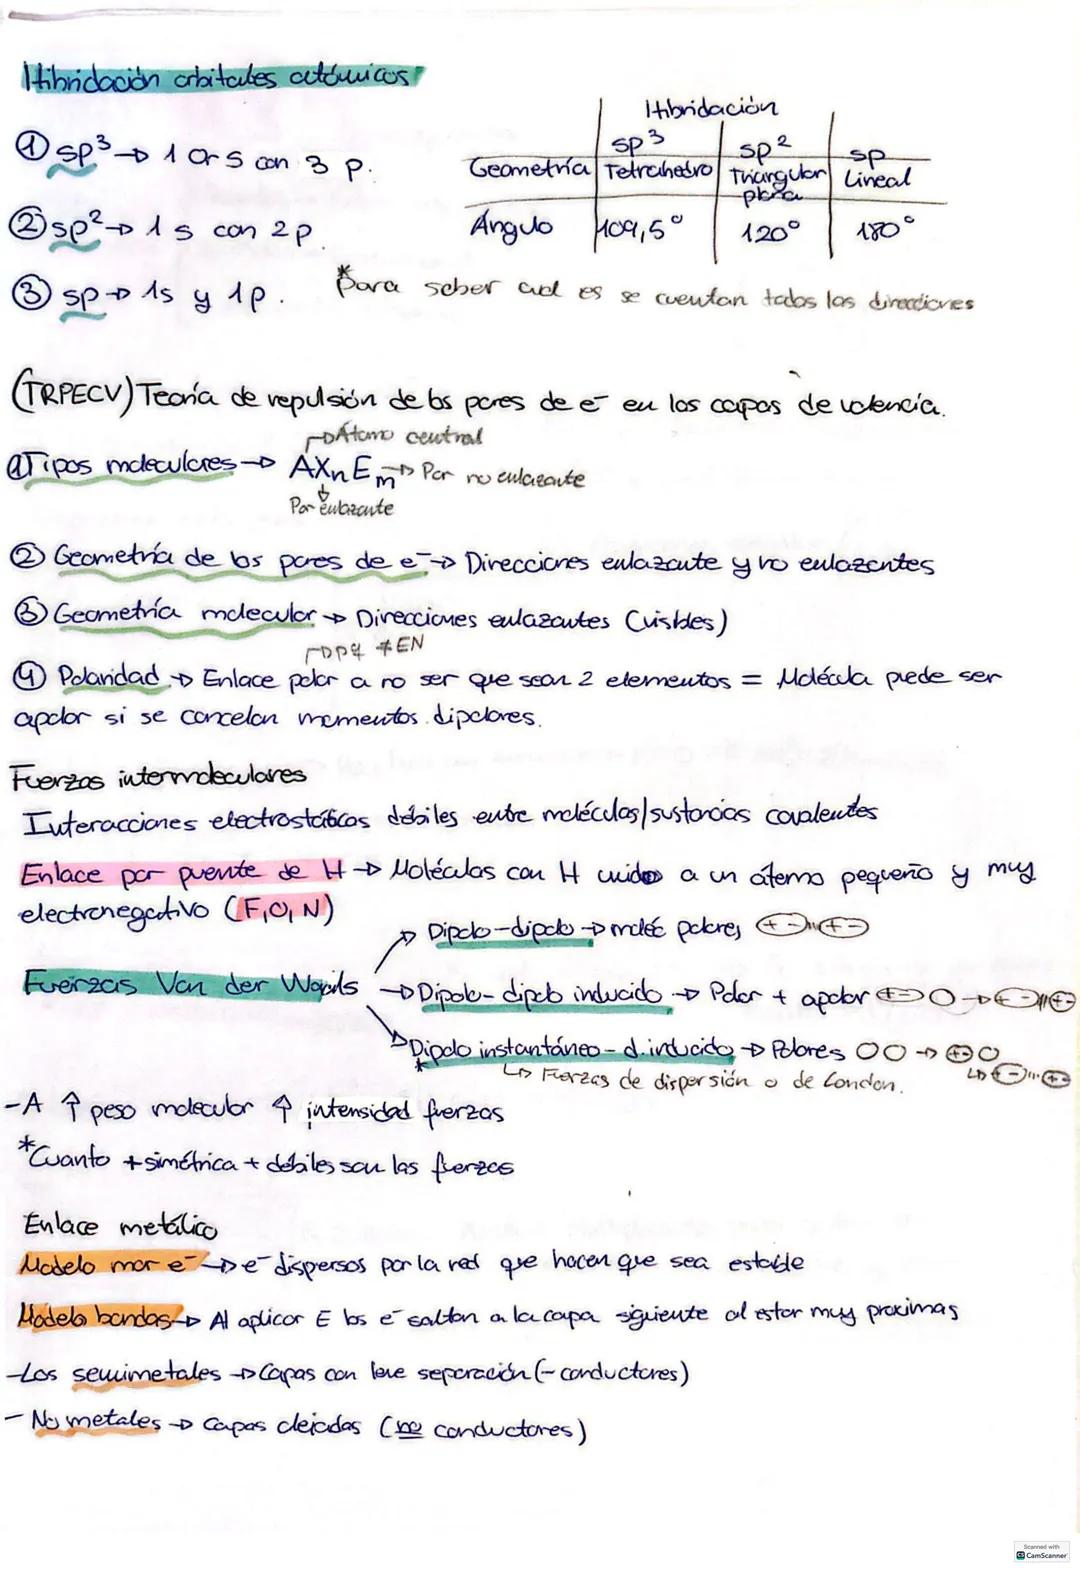 Hibridación orbitales atómicos
① sp³ → 1 or s con 3 p.
② sp² → 1 s con 2p.
③ sp → 1s y 1p.
Hibridación
sp³ sp² sp
Geometría Tetrahedro Triangular plana Lineal
Ángulo 109,5° 120° 180°
*Para saber cual es se cuentan todas las direcciones
(TRPECV) Teoría de repulsión de los pares de e⁻ en las capas de valencia.
→Átomo central
① Tipos moleculares → AXnEm → Par no enlazante
Par enlazante
② Geometría de los pares de e⁻ → Direcciones enlazante y no enlazantes
③ Geometría molecular → Direcciones enlazantes (visibles)
→pq ≠EN
④ Polaridad → Enlace polar a no ser que sean 2 elementos = Molécula puede ser
apolar si se cancelan momentos dipolares.
Fuerzas intermoleculares
Interacciones electrostáticas débiles entre moléculas/sustancias covalentes
Enlace por puente de H → Moléculas con H unido a un átomo pequeño y muy
electronegativo (F, O, N)
Fuerzas Van der Waals
→ Dipolo-dipolo → moléc polares
→ Dipolo-dipolo inducido → Polar + apolar
→ Dipolo instantáneo - d. inducido → Polares
*
↳ Fuerzas de dispersión o de London.
-A ↑ peso molecular ↑ intensidad fuerzas
*Cuanto + simétrica + débiles son las fuerzas
Enlace metálico
Modelo mar e⁻ → e⁻ dispersos por la red que hacen que sea estable
Modelo bandas → Al aplicar E los e⁻ saltan a la capa siguiente al estar muy proximas
-Los semimetales → Capas con leve separación (- conductores)
- No metales → Capas alejadas (no conductores)
Scanned with
CS CamScanner